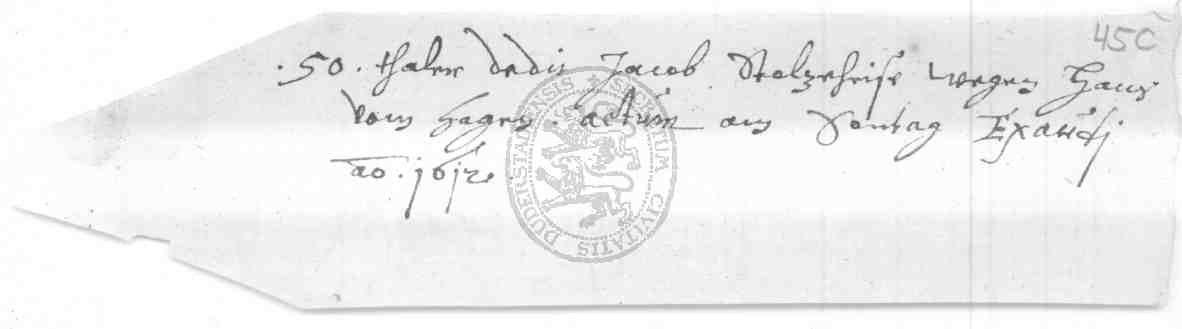 45C
. 50 . thaler dedit Jacob Stolzeheise wegen Hans
vom Hagen . actum am Sontag Exaudi
ao . 1612 .
SIGILLUM CIVITATIS DUDERSTATENSIS